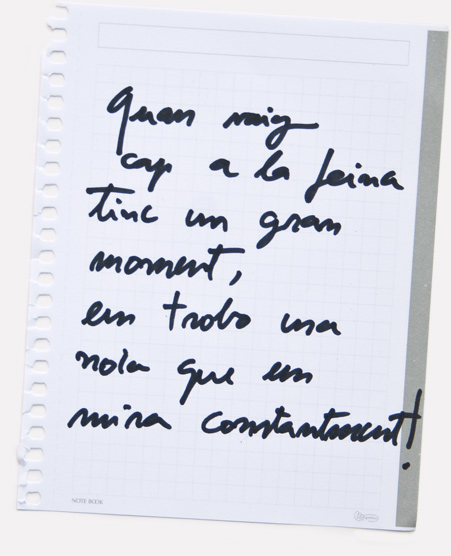 Quan vaig
cap a la feina
tinc un gran
moment,
em trobo una
noia que em
mira constantment!
NOTE BOOK